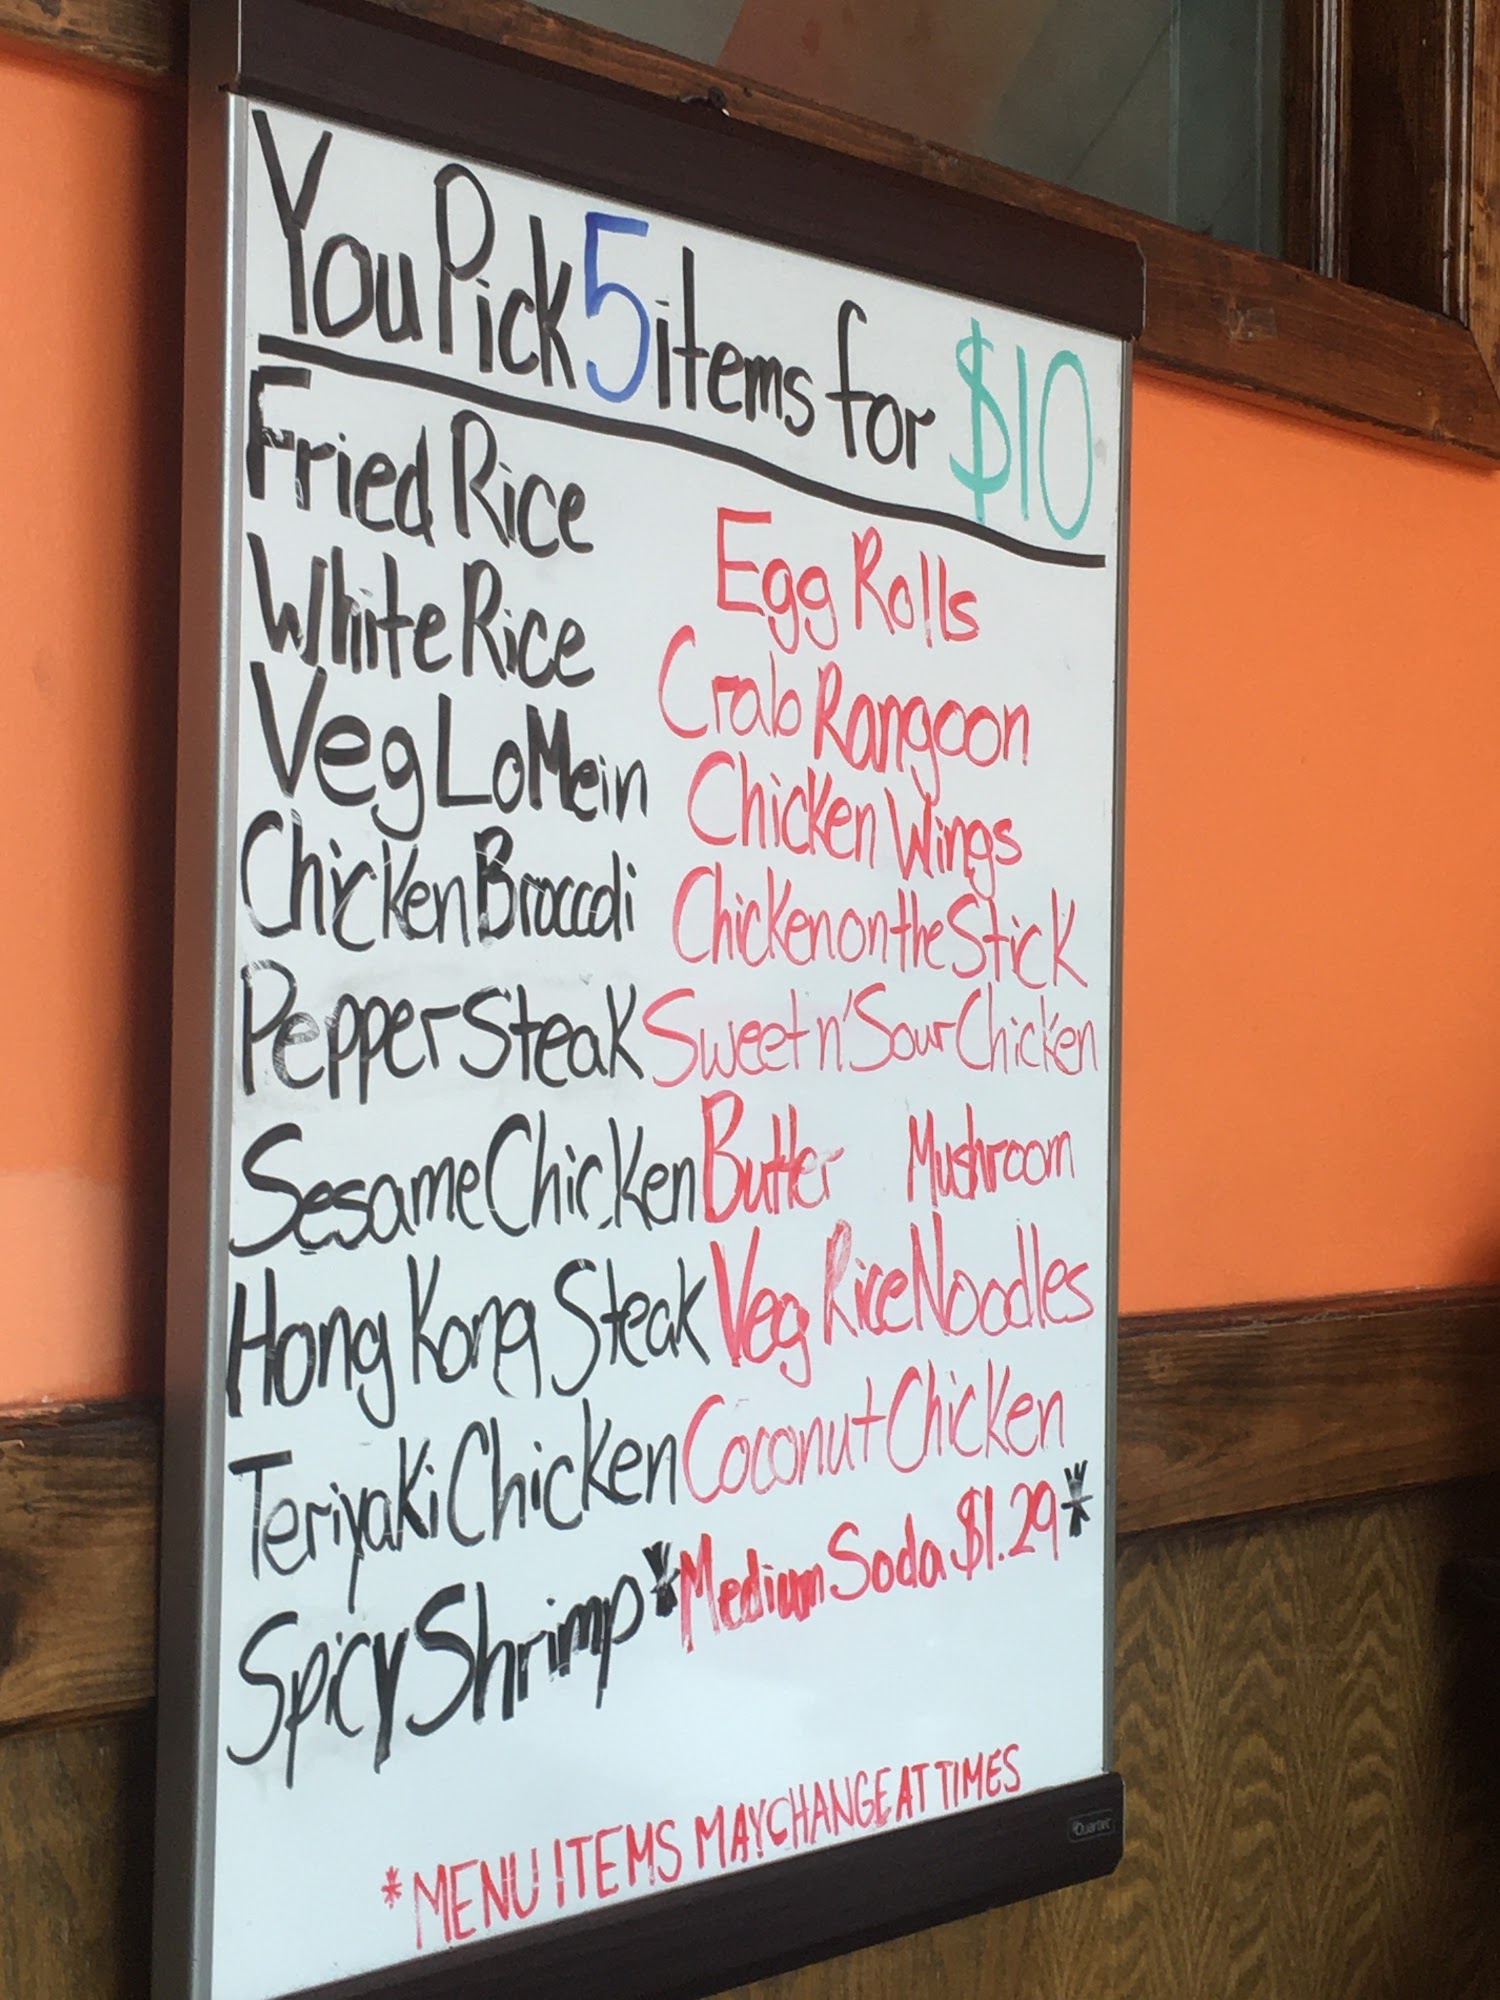 You Pick 5 items for $10
Fried Rice
White Rice
Veg LoMein
Chicken Broccoli
Pepper Steak
Sesame Chicken
Hong Kong Steak
Teriyaki Chicken
Spicy Shrimp
Egg Rolls
Crab Rangoon
Chicken Wings
Chicken on the Stick
Sweet n' Sour Chicken
Butter Mushroom
Veg Rice Noodles
Coconut Chicken
*Medium Soda $1.29*
*MENU ITEMS MAY CHANGE AT TIMES
Quartet